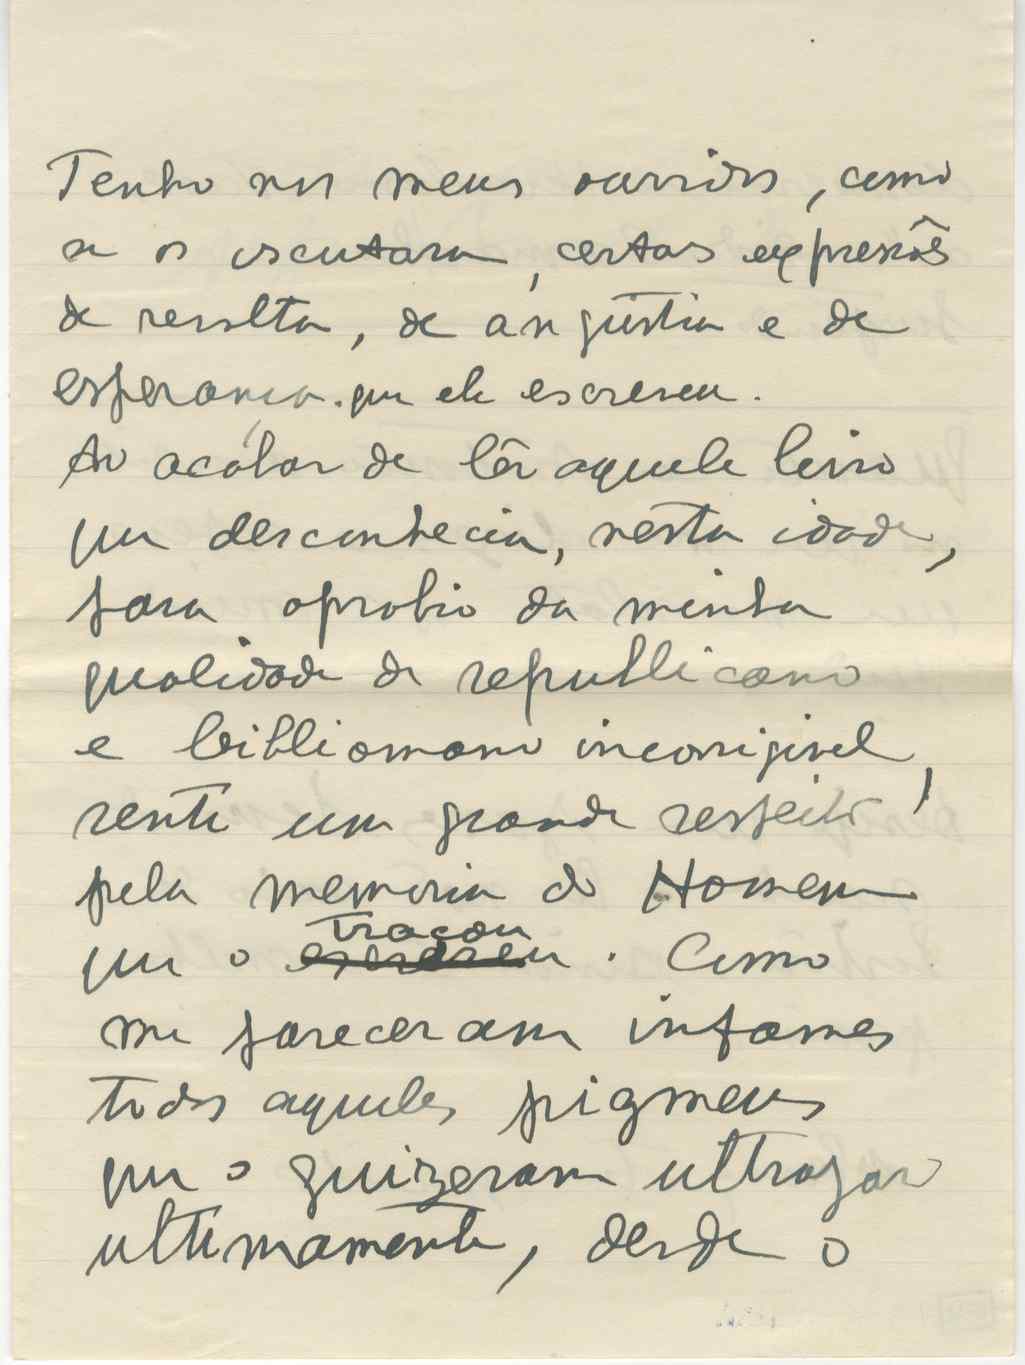 Tenho nos meus ouvidos, como
se os escutara, certas expressões
de revolta, de angústia e de
esperança. que ele escreveu.
Ao acabar de lêr aquele livro
que desconhecia, nesta idade,
para oprobio da minha
qualidade de republicano
e bibliomano incorrigivel,
senti um grande respeito
pela memoria do Homem
que o traçou. Como
me pareceram infames
todos aqueles pigmeus
que o quizeram ultrajar
ultimamente, desde o